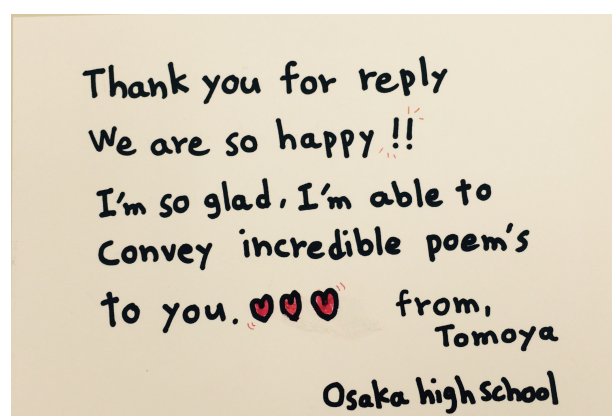 Thank you for reply
We are so happy !!
I'm so glad, I'm able to
convey incredible poem's
to you.
from,
Tomoya
Osaka high school